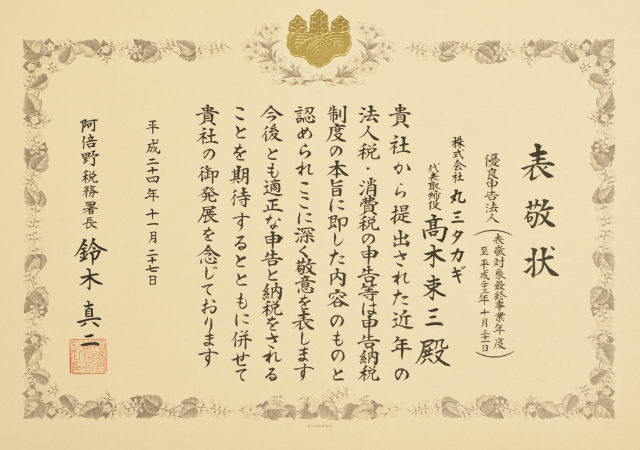 表敬状
優良申告法人
(表敬対象最終事業年度
至平成二十三年十月三十一日)
株式会社 丸三タカギ
代表取締役 髙木東三殿
貴社から提出された近年の
法人税・消費税の申告等は申告納税
制度の本旨に即した内容のものと
認められここに深く敬意を表します
今後とも適正な申告と納税をされる
ことを期待するとともに併せて
貴社の御発展を念じております
平成二十四年十一月二十七日
阿倍野税務署長 鈴木真二